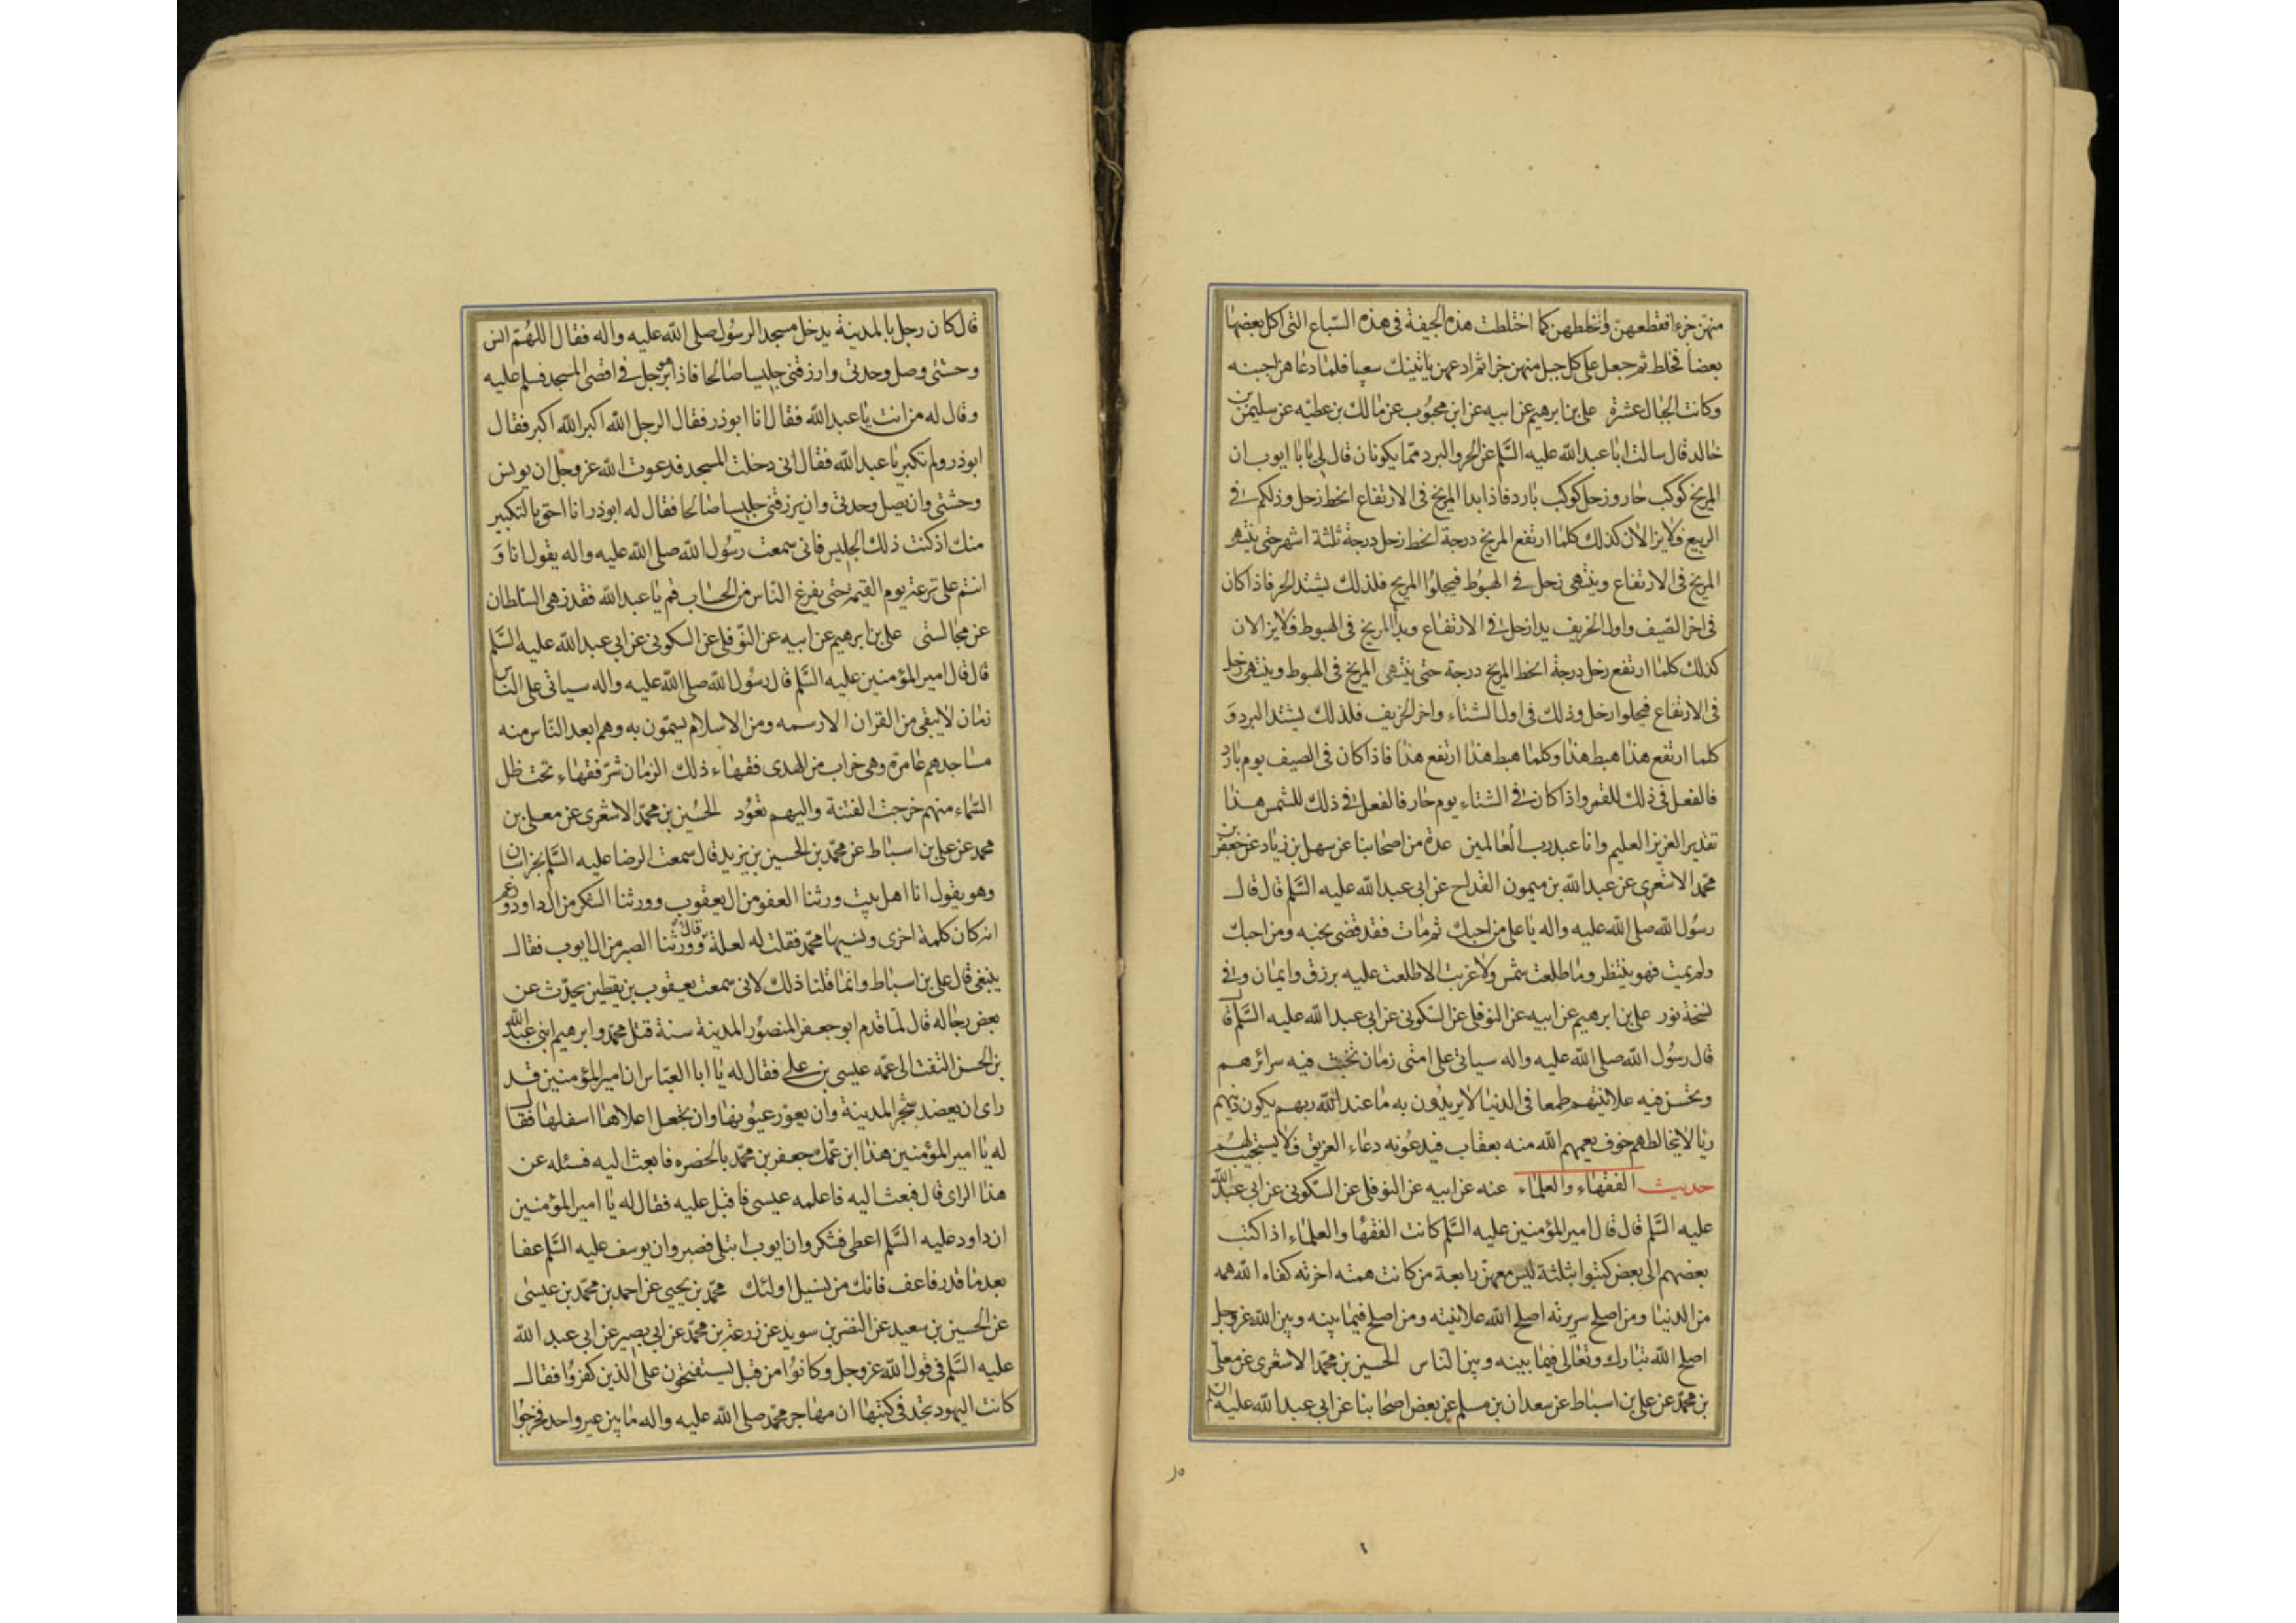 منهنّ جزءا فقطعهنّ واخلطهن كما اختلطت هذه الجيفة فى هذه السّباع التى اكل بعضها
بعضا فخلط ثم جعل على كل جبل منهن جزا ثم ادعهن ياتينك سعيا فلما دعاهن اجبنه
وكانت الجبال عشرة على بن ابرهيم عن ابيه عن ابن محبوب عن مالك بن عطيّه عن سليمن بن
خالد قال سالت ابا عبد الله عليه السّلم عن الحر والبرد ممّا يكونان قال لى يا با ايوب ان
المريخ كوكب حار وزحل كوكب بارد فاذا بدا المريخ فى الارتفاع انحط زحل وذلكم فى
الربيع فلا يزالان كذلك كلما ارتفع المريخ درجة انحط زحل درجة ثلثة اشهر حتى ينتهى
المريخ فى الارتفاع وينتهى زحل فى الهبوط فيجلوا المريخ فلذلك يشتد الحر فاذا كان
فى اخر الصّيف واول الخريف بدا زحل فى الارتفاع وبدأ المريخ فى الهبوط فلا يزالان
كذلك كلما ارتفع زحل درجة انحط المريخ درجة حتى ينتهى المريخ فى الهبوط وينتهى زحل
فى الارتفاع فيجلوا زحل وذلك فى اول الشتاء واخر الخريف فلذلك يشتد البرد وَ
كلما ارتفع هذا هبط هذا وكلما هبط هذا ارتفع هذا فاذا كان فى الصيف يوم بارد
فالفعل فى ذلك للقمر واذا كان فى الشتاء يوم حار فالفعل فى ذلك للشمس هذا
تقدير العزيز العليم وانا عبد رب العالمين عدة من اصحابنا عن سهل بن زياد عن جعفر بن
محمّد الاشعرى عن عبد الله بن ميمون القداح عن ابى عبد الله عليه السّلم قال قال
رسول الله صلى الله عليه واله يا على من احبك ثم مات فقد قضى نحبه ومن احبك
ولم يمت فهو ينتظر وما طلعت شمس ولا غربت الا طلعت عليه برزق وايمان وفى
نسخة نور على بن ابرهيم عن ابيه عن النوفلى عن السّكونى عن ابى عبد الله عليه السّلم قال
قال رسول الله صلى الله عليه واله سياتى على امتى زمان تخبث فيه سرائرهم
وتحسن فيه علانيتهم طمعا فى الدنيا لا يريدون به ما عند الله ربهم يكون دينهم
ريا لا يخالطهم خوف يعمهم الله منه بعقاب فيدعونه دعاء الغريق فلا يستجيب لهم
حديث الفقهاء والعلماء عنه عن ابيه عن النوفلى عن السّكونى عن ابى عبد الله
عليه السّلم قال قال امير المؤمنين عليه السّلم كانت الفقها والعلماء اذا كتب
بعضهم الى بعض كتبوا بثلثة ليس معهن رابعة من كانت همته اخرته كفاه الله همه
من الدنيا ومن اصلح سريرته اصلح الله علانيته ومن اصلح فيما بينه وبين الله عز وجل
اصلح الله تبارك وتعالى فيما بينه وبين الناس الحسين بن محمّد الاشعرى عن معلّى
بن محمّد عن على بن اسباط عن سعدان بن مسلم عن بعض اصحابنا عن ابى عبد الله عليه السلم
قال كان رجل بالمدينة يدخل مسجد الرسول صلى الله عليه واله فقال اللهُمّ انس
وحشتى وصل وحدتى وارزقنى جليسا صالحا فاذا هو برجل فى اقصى المسجد فسلم عليه
وقال له من انت يا عبد الله فقال انا ابوذر فقال الرجل الله اكبر الله اكبر فقال
ابوذر ولم تكبر يا عبد الله فقال انى دخلت المسجد فدعوت الله عز وجل ان يونس
وحشتى وان يصل وحدتى وان يرزقنى جليسا صالحا فقال له ابوذر انا احق بالتكبير
منك اذ كنت ذلك الجليس فانى سمعت رسول الله صلى الله عليه واله يقول انا وَ
انتم على ترعة يوم القيمة حتى يفرغ الناس من الحساب قم يا عبد الله فقد نهى السّلطان
عن مجالستى على بن ابرهيم عن ابيه عن النّوفلى عن السكونى عن ابى عبد الله عليه السّلم
قال قال امير المؤمنين عليه السّلم قال رسول الله صلى الله عليه واله سياتى على الناس
زمان لا يبقى من القران الا رسمه ومن الاسلام يسمّون به وهم ابعد النّاس منه
مساجدهم عامرة وهى خراب من الهدى فقهاء ذلك الزمان شرّ فقهاء تحت ظل
السّماء منهم خرجت الفتنة واليهم تعود الحسين بن محمّد الاشعرى عن معلى بن
محمد عن على بن اسباط عن محمّد بن الحسين بن يزيد قال سمعت الرضا عليه السّلم بخراسان
وهو يقول انا اهل بيت ورثنا العفو من ال يعقوب وورثنا الشكر من ال داود وزعم
انه كان كلمة اخرى ونسيها محمّد فقلت له لعله قال وورثنا الصبر من ال ايوب فقال
ينبغى قال على بن اسباط وانما قلنا ذلك لانى سمعت يعقوب بن يقطين يحدّث عن
بعض رجاله قال لمّا قدم ابو جعفر المنصور المدينة سنة قتل محمّد وابرهيم ابنى عبد الله
بن الحسن التفت الى عمّه عيسى بن على فقال له يا ابا العبّاس ان امير المؤمنين قد
راى ان يعضد شجر المدينة وان يعوّر عيونها وان يجعل اعلاها اسفلها فقال
له يا امير المؤمنين هذا ابن عمّك جعفر بن محمّد بالحضره فابعث اليه فسئله عن
هذا الراى قال فبعث اليه فاعلمه عيسى فاقبل عليه فقال له يا امير المؤمنين
ان داود عليه السّلم اعطى فشكر وان ايوب ابتلى فصبر وان يوسف عليه السّلم عفا
بعد ما قدر فاعف فانك من نسل اولئك محمّد بن يحيى عن احمد بن محمّد بن عيسى
عن الحسين بن سعيد عن النضر بن سويد عن زرعة بن محمّد عن ابى بصير عن ابى عبد الله
عليه السّلم فى قول الله عز وجل وكانوا من قبل يستفتحون على الذين كفروا فقال
كانت اليهود تجد فى كتبها ان مهاجر محمّد صلى الله عليه واله ما بين عير واحد فخرجوا